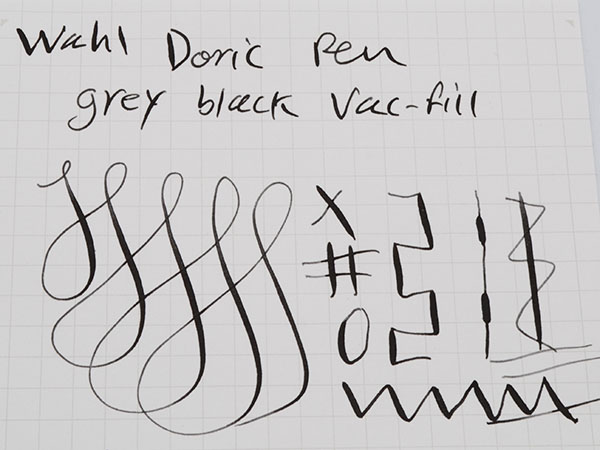 Wahl Doric Pen
grey black Vac-fill
X
#
O